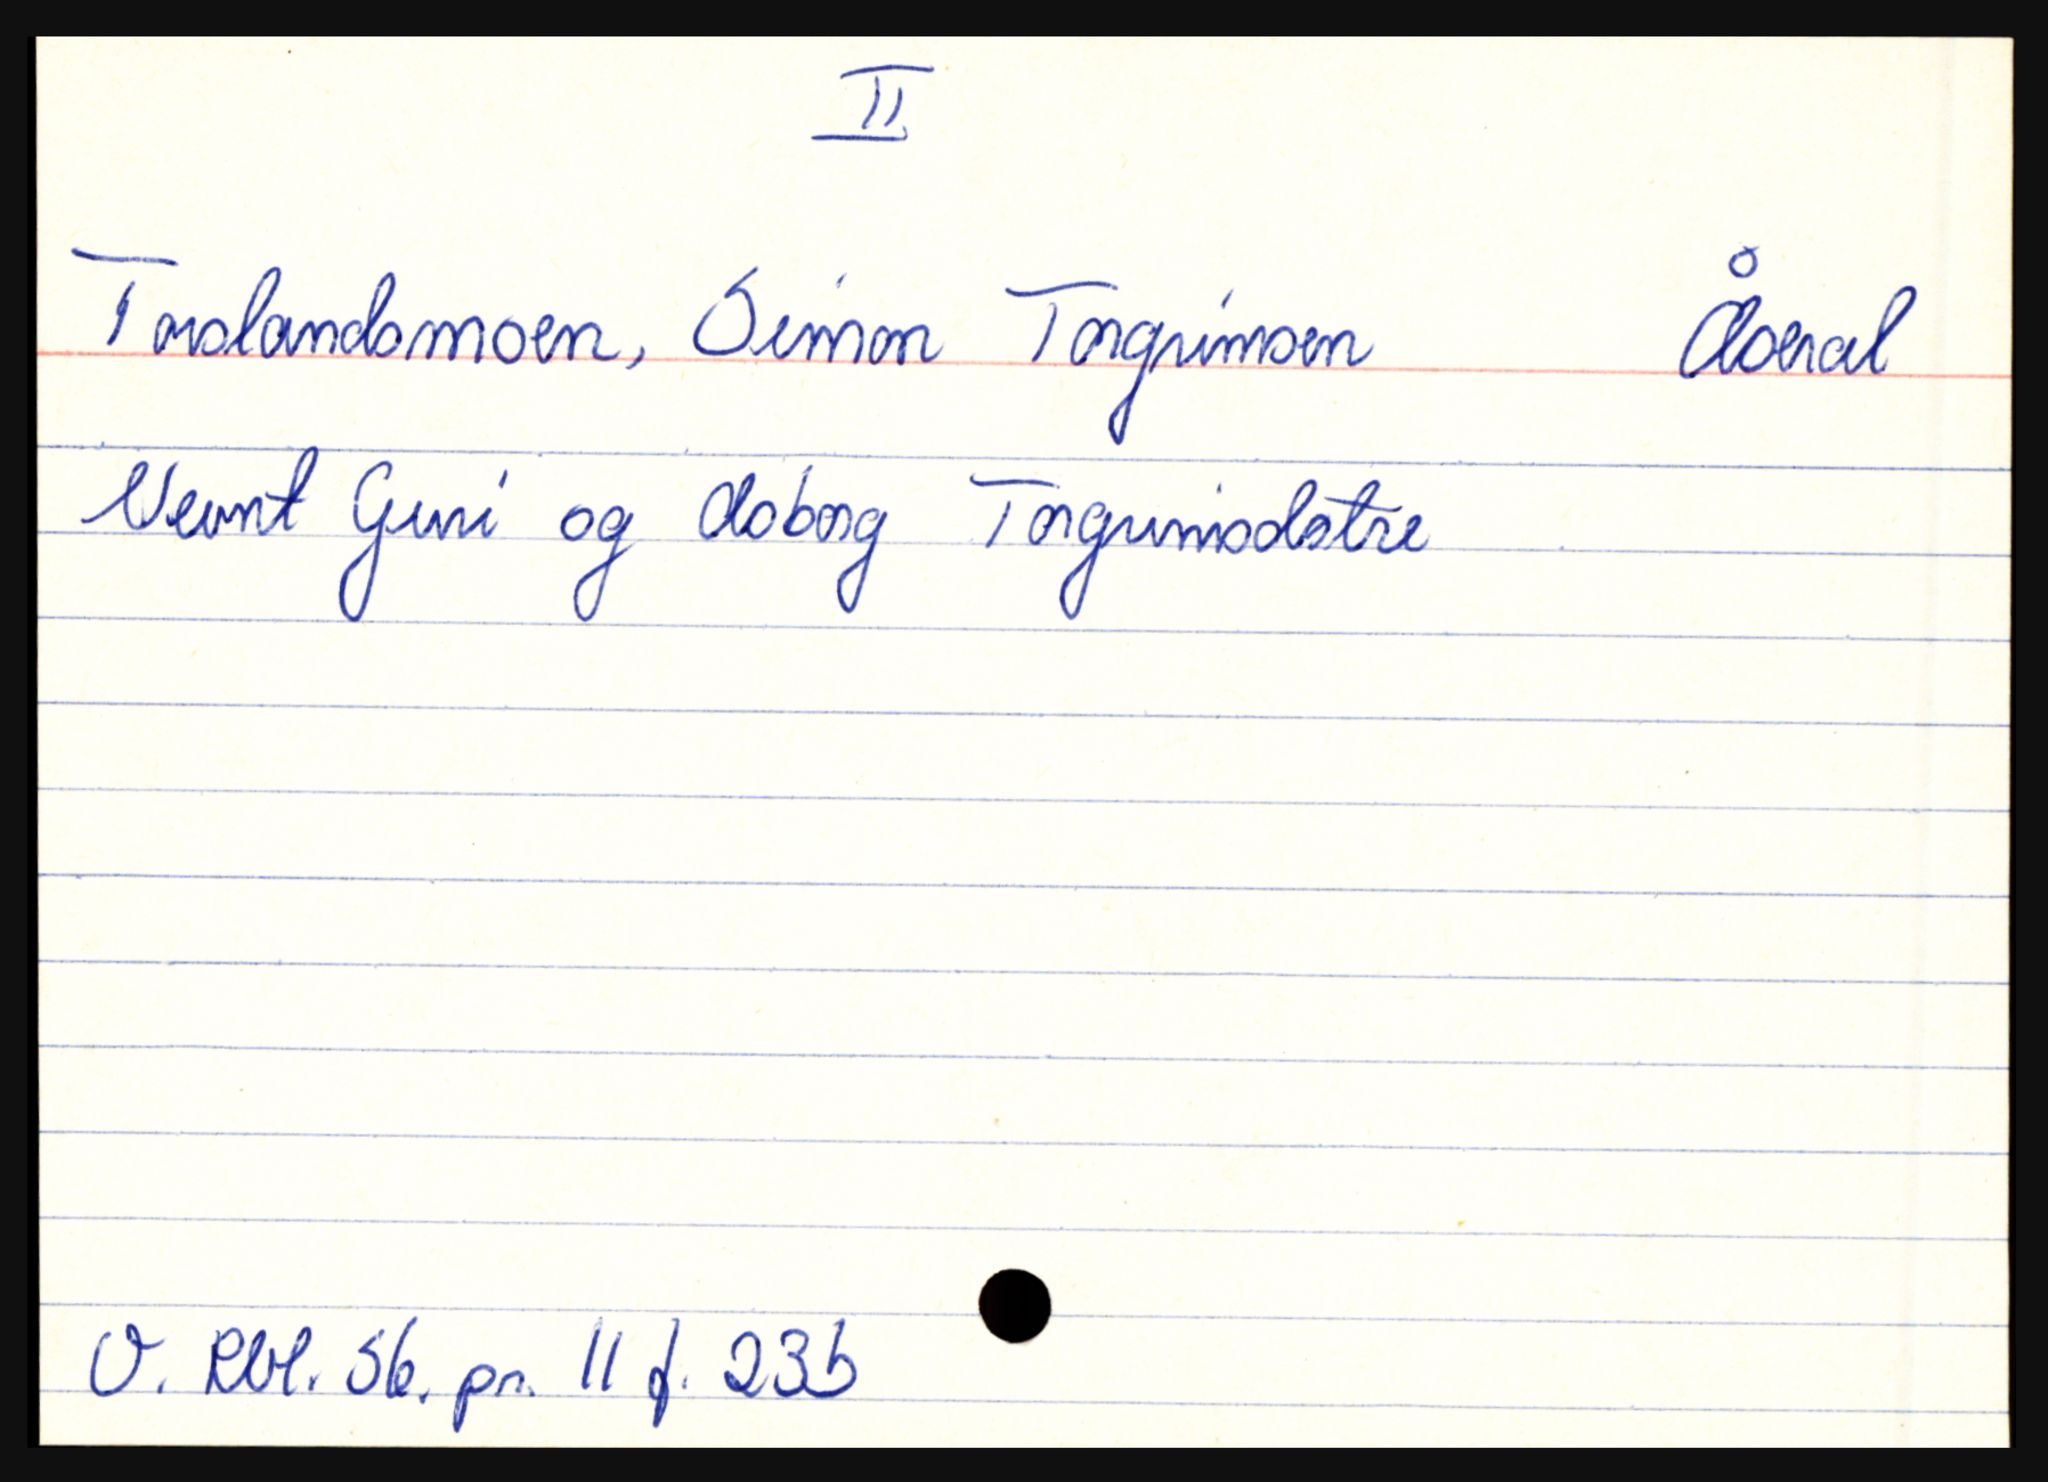 II
Torslandsmoen, Simon Torgrimsen Åseral
Nevnt Guri og Åsborg Torgrimsdøtre
V. Rbl. 56. pr. 11 f. 23b